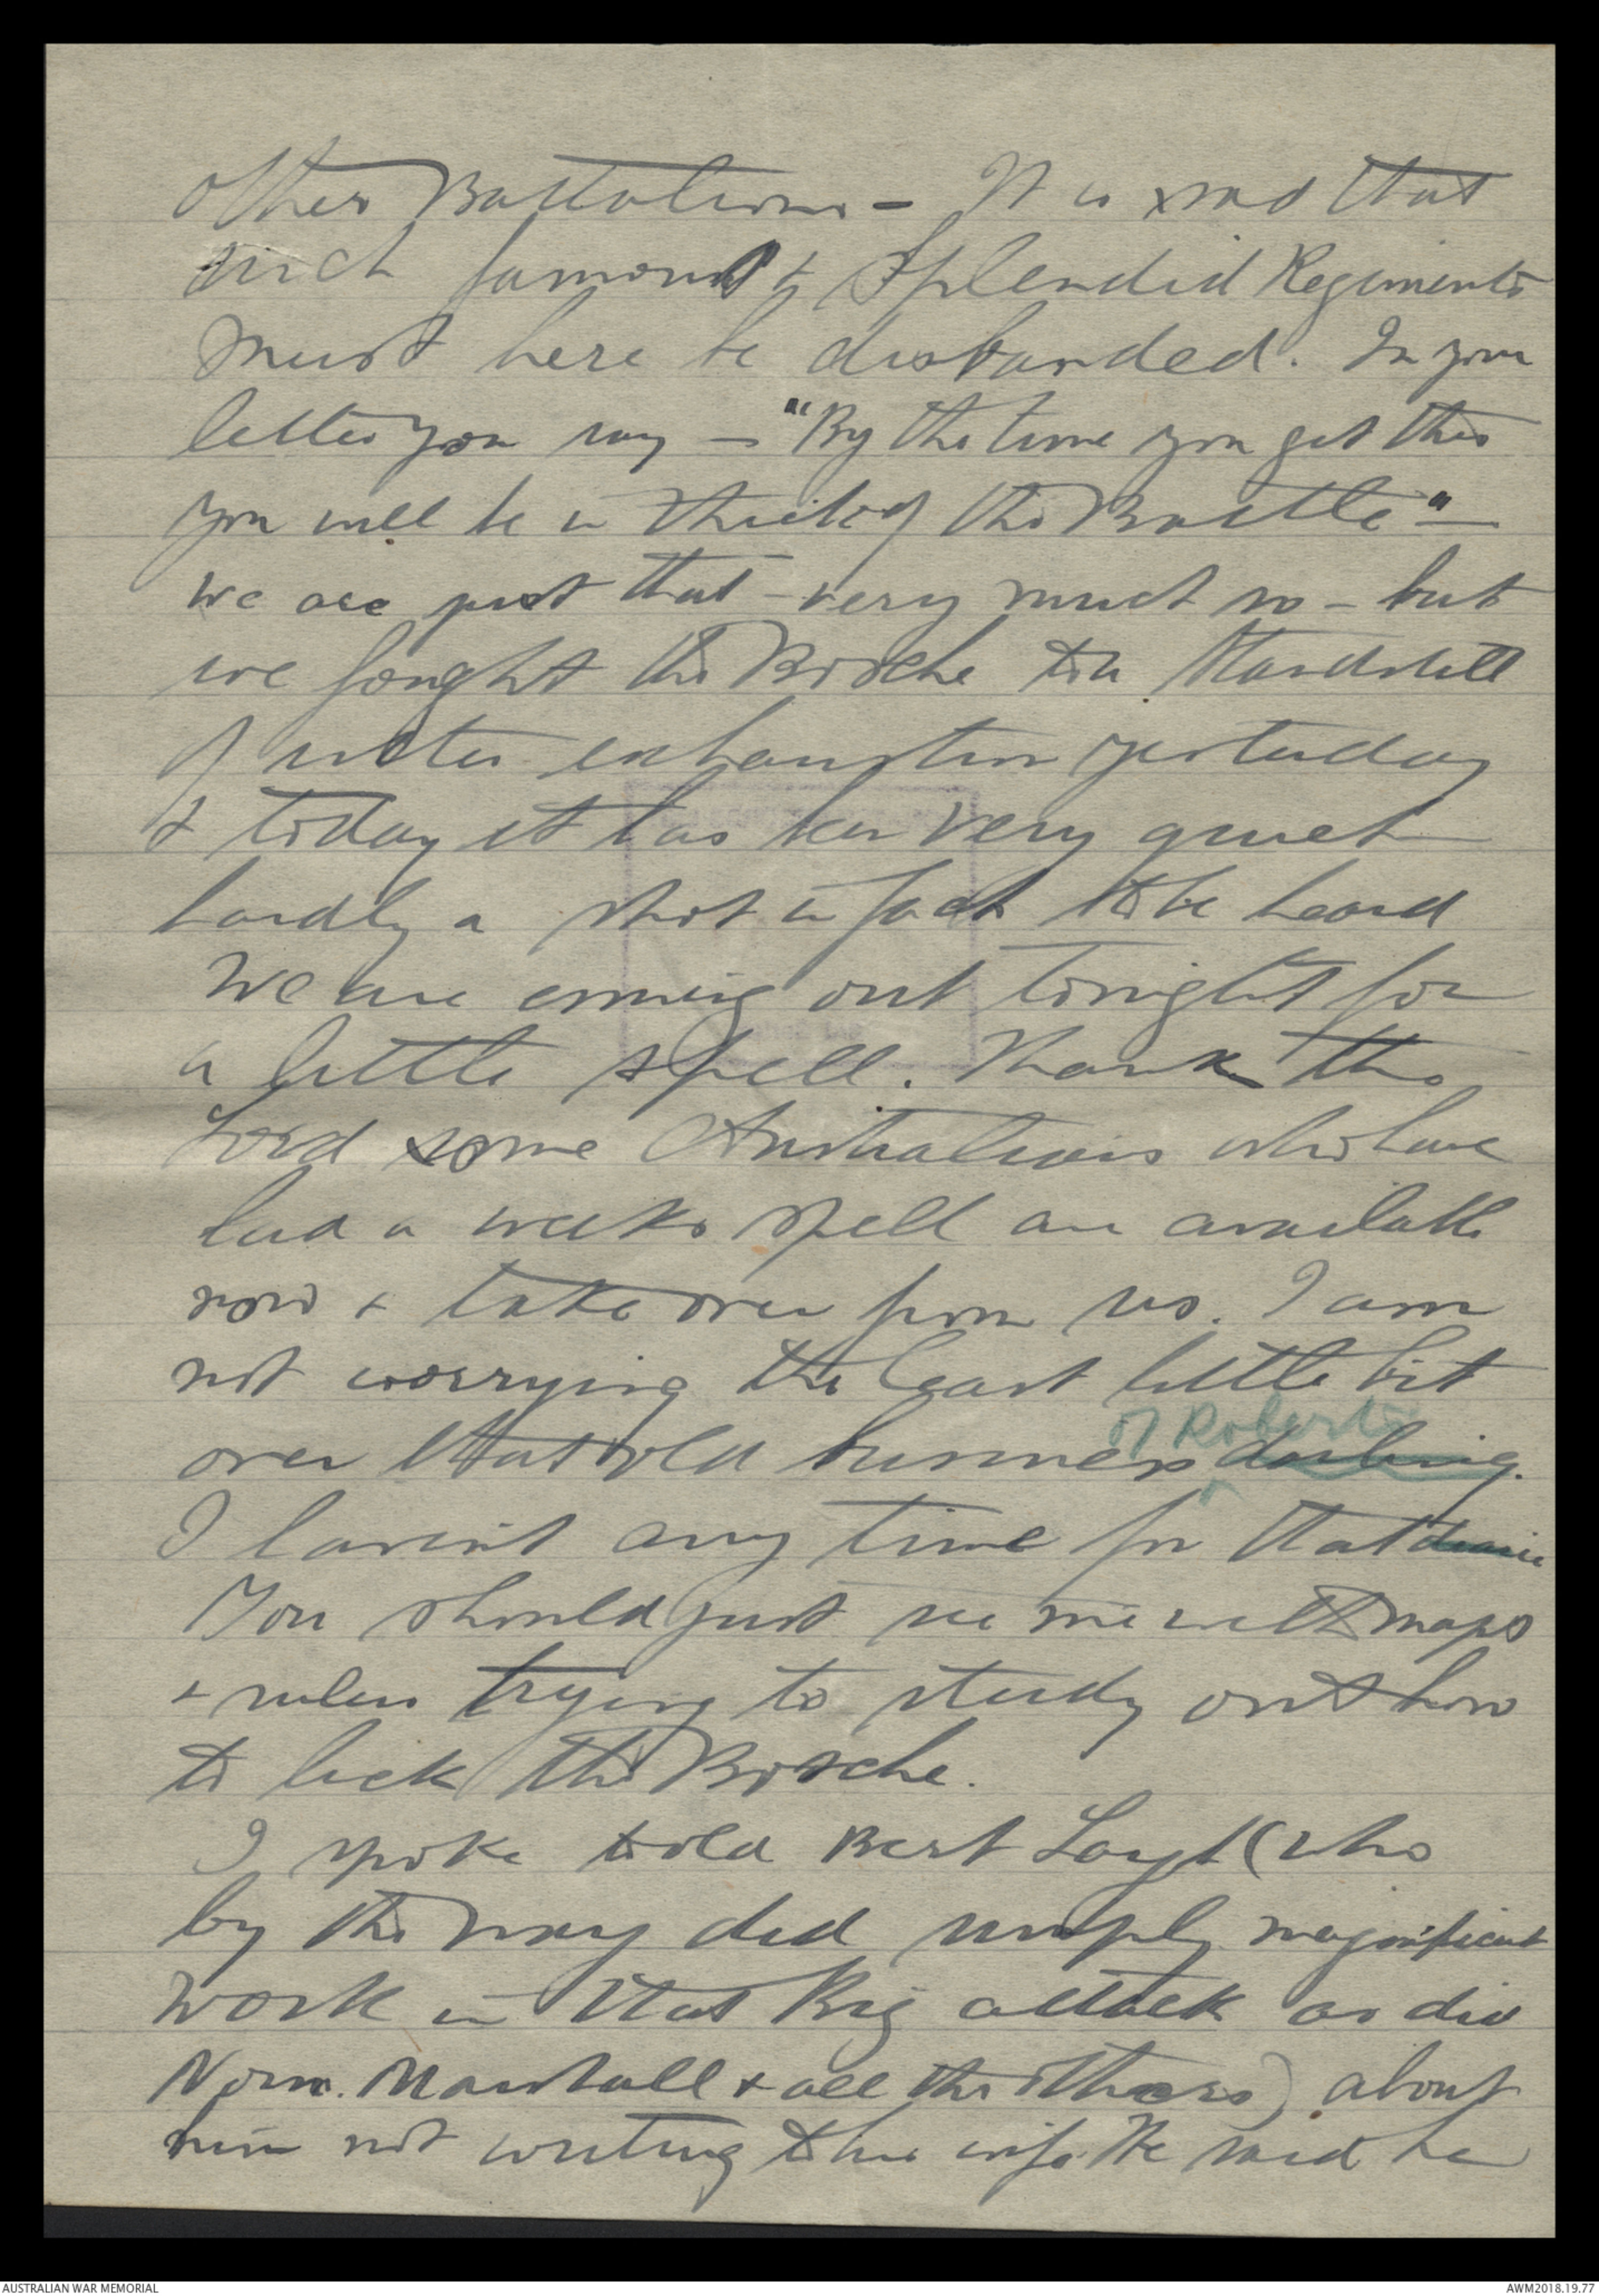 other Battalions - It is sad that
such famous & splendid Regiments
must here be disbanded. In your
letter you say - "By the time you get this
you will be in thick of the Battle" -
we are just that - very much so - but
we fought the Bosche to a standstill
of utter exhaustion yesterday
& today it has been very quiet
hardly a shot in fact to be heard
We are coming out tonight for
a little spell. Thank the
Lord some Australians who have
had a weeks spell are available
now & take over from us. I am
not worrying the least little bit
of Roberts
over that old business darling.
I haven't any time for that dearie
You should just see me with maps
& rulers trying to study out how
to lick the Bosche.
I spoke to old Bert Layh (who
by the way did simply magnificent
work in that Big attack as did
Norm. Marshall & all the others) about
him not writing to his wife He said he
AUSTRALIAN WAR MEMORIAL
AWM2018.19.77